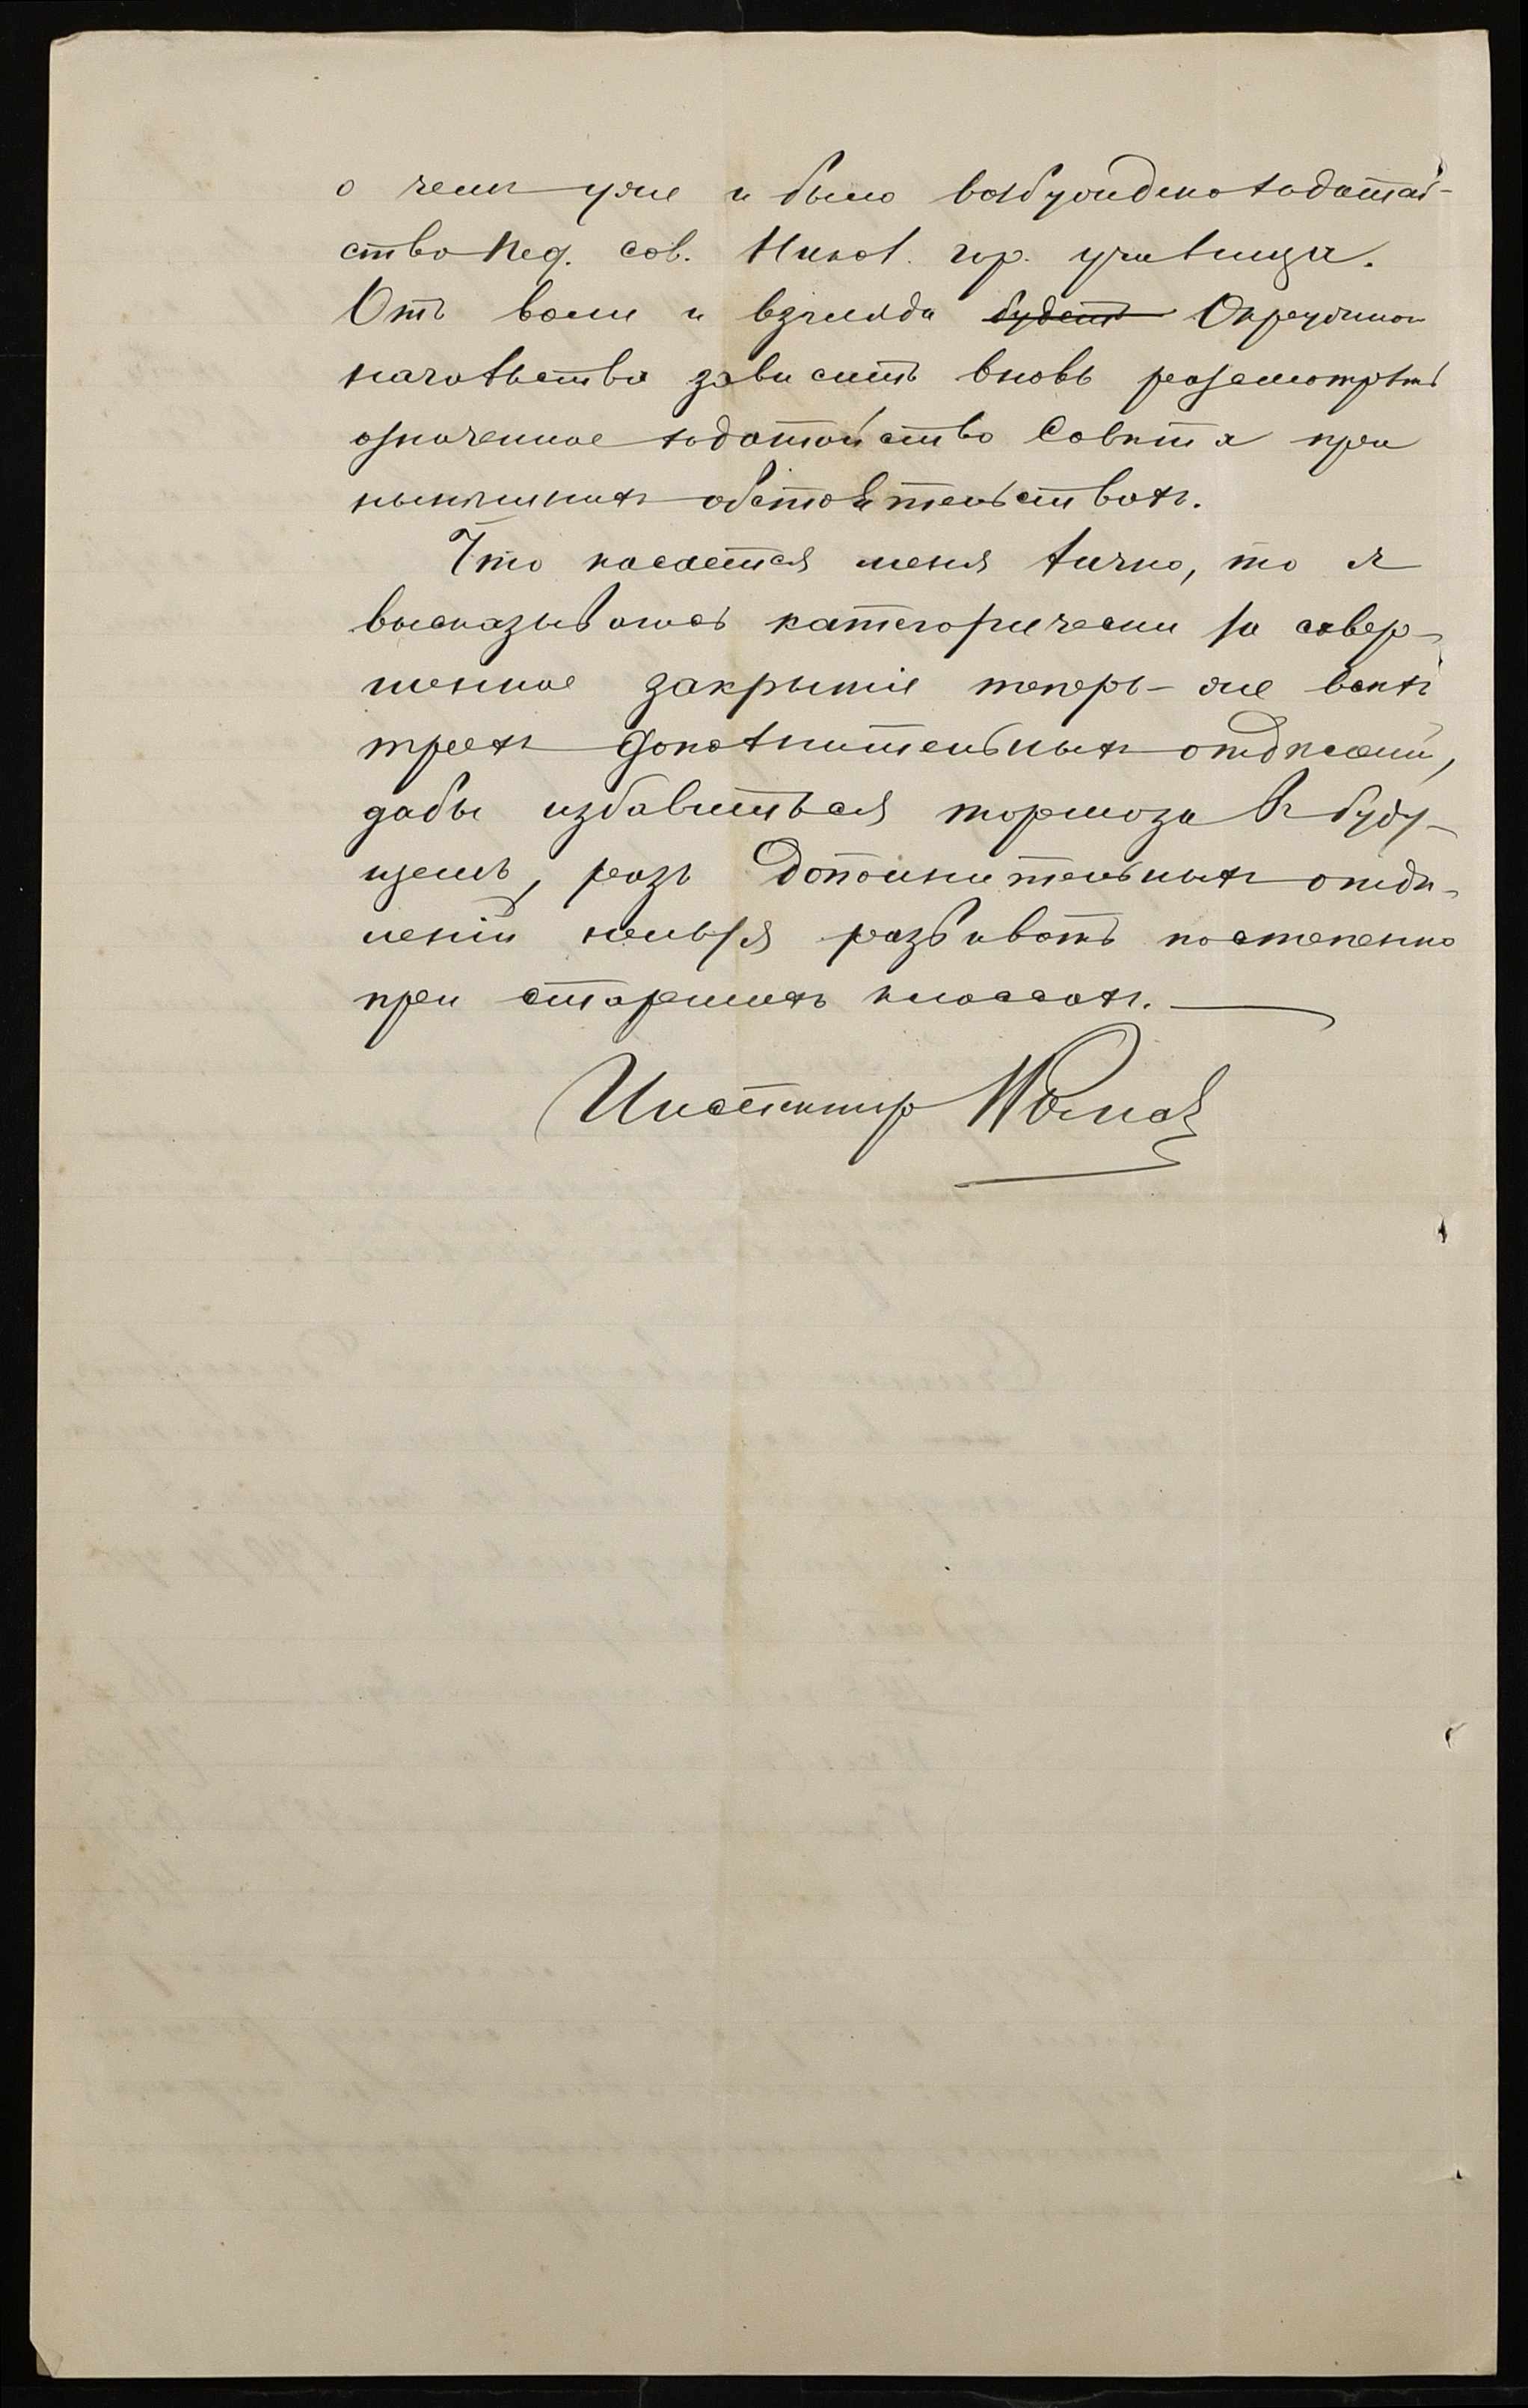 о чемъ уже и было возбуждено ходатай-
ство Пед. сов. Никол. гор. училища.
Отъ воли и взгляда будетъ Окружного
начальства зависитъ вновь разсмотрѣть
означенное ходатайство Совѣта при
нынѣшнихъ обстоятельствахъ.
Что касается меня лично, то я
высказываюсь категорически за совер-
шенное закрытіе теперь-же всѣхъ
трехъ дополнительныхъ отдѣленій,
дабы избавиться тормоза въ буду-
щемъ, разъ дополнительныхъ отдѣ-
леній нельзя развивать постепенно
при старшихъ классахъ.
Инспекторъ